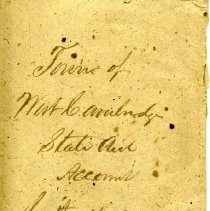 Town of
West Cambridge
State Aid
Account